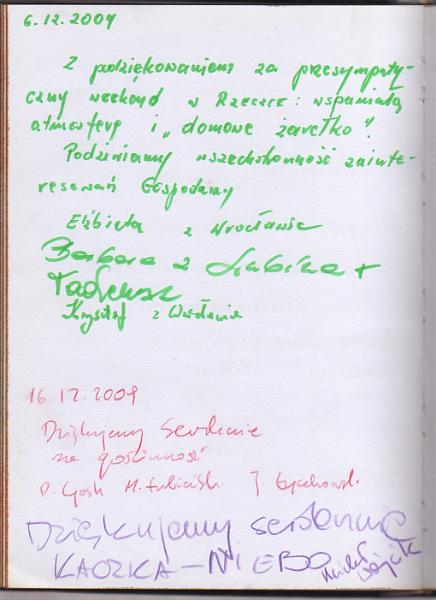 6.12.2009
Z podziękowaniem za przesympaty-
czny weekend w Rzeczce: wspaniałą
atmosferę i „domowe żarełko".
Podziwiamy wszechstronność zainte-
resowań Gospodarzy
Elżbieta z Wrocławia
Barbara z Lubina +
Tadeusz
Krzysztof z Wrocławia
16.12.2009
Dziękujemy Serdecznie
za gościnność
P. Gosk M. Łubiński J.
Dziękujemy serdecznie
KACZKA – NIEBO